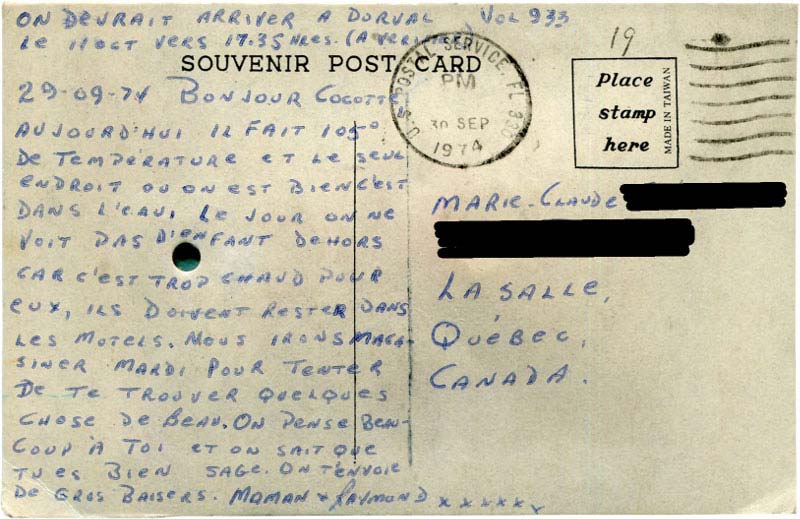 ON DEVRAIT ARRIVER A DORVAL VOL 933
LE 11 OCT VERS 17.35 HRES. (A VERIFIER)
SOUVENIR POST CARD
29-09-74 BONJOUR COCOTTE
AUJOURD'HUI IL FAIT 105°
DE TEMPÉRATURE ET LE SEUL
ENDROIT OU ON EST BIEN C'EST
DANS L'EAU. LE JOUR ON NE
VOIT PAS D'ENFANT DEHORS
CAR C'EST TROP CHAUD POUR
EUX, ILS DOIVENT RESTER DANS
LES MOTELS. NOUS IRONS MAGA-
SINER MARDI POUR TENTER
DE TE TROUVER QUELQUES
CHOSE DE BEAU. ON PENSE BEAU-
COUP À TOI ET ON SAIT QUE
TU ES BIEN SAGE. ON T'ENVOIE
DE GROS BAISERS. MAMAN & RAYMOND x x x x x x
U.S. POSTAL SERVICE, FL 330
PM
30 SEP
1974
19
Place
stamp
here
MADE IN TAIWAN
MARIE-CLAUDE
LASALLE,
QUÉBEC,
CANADA.